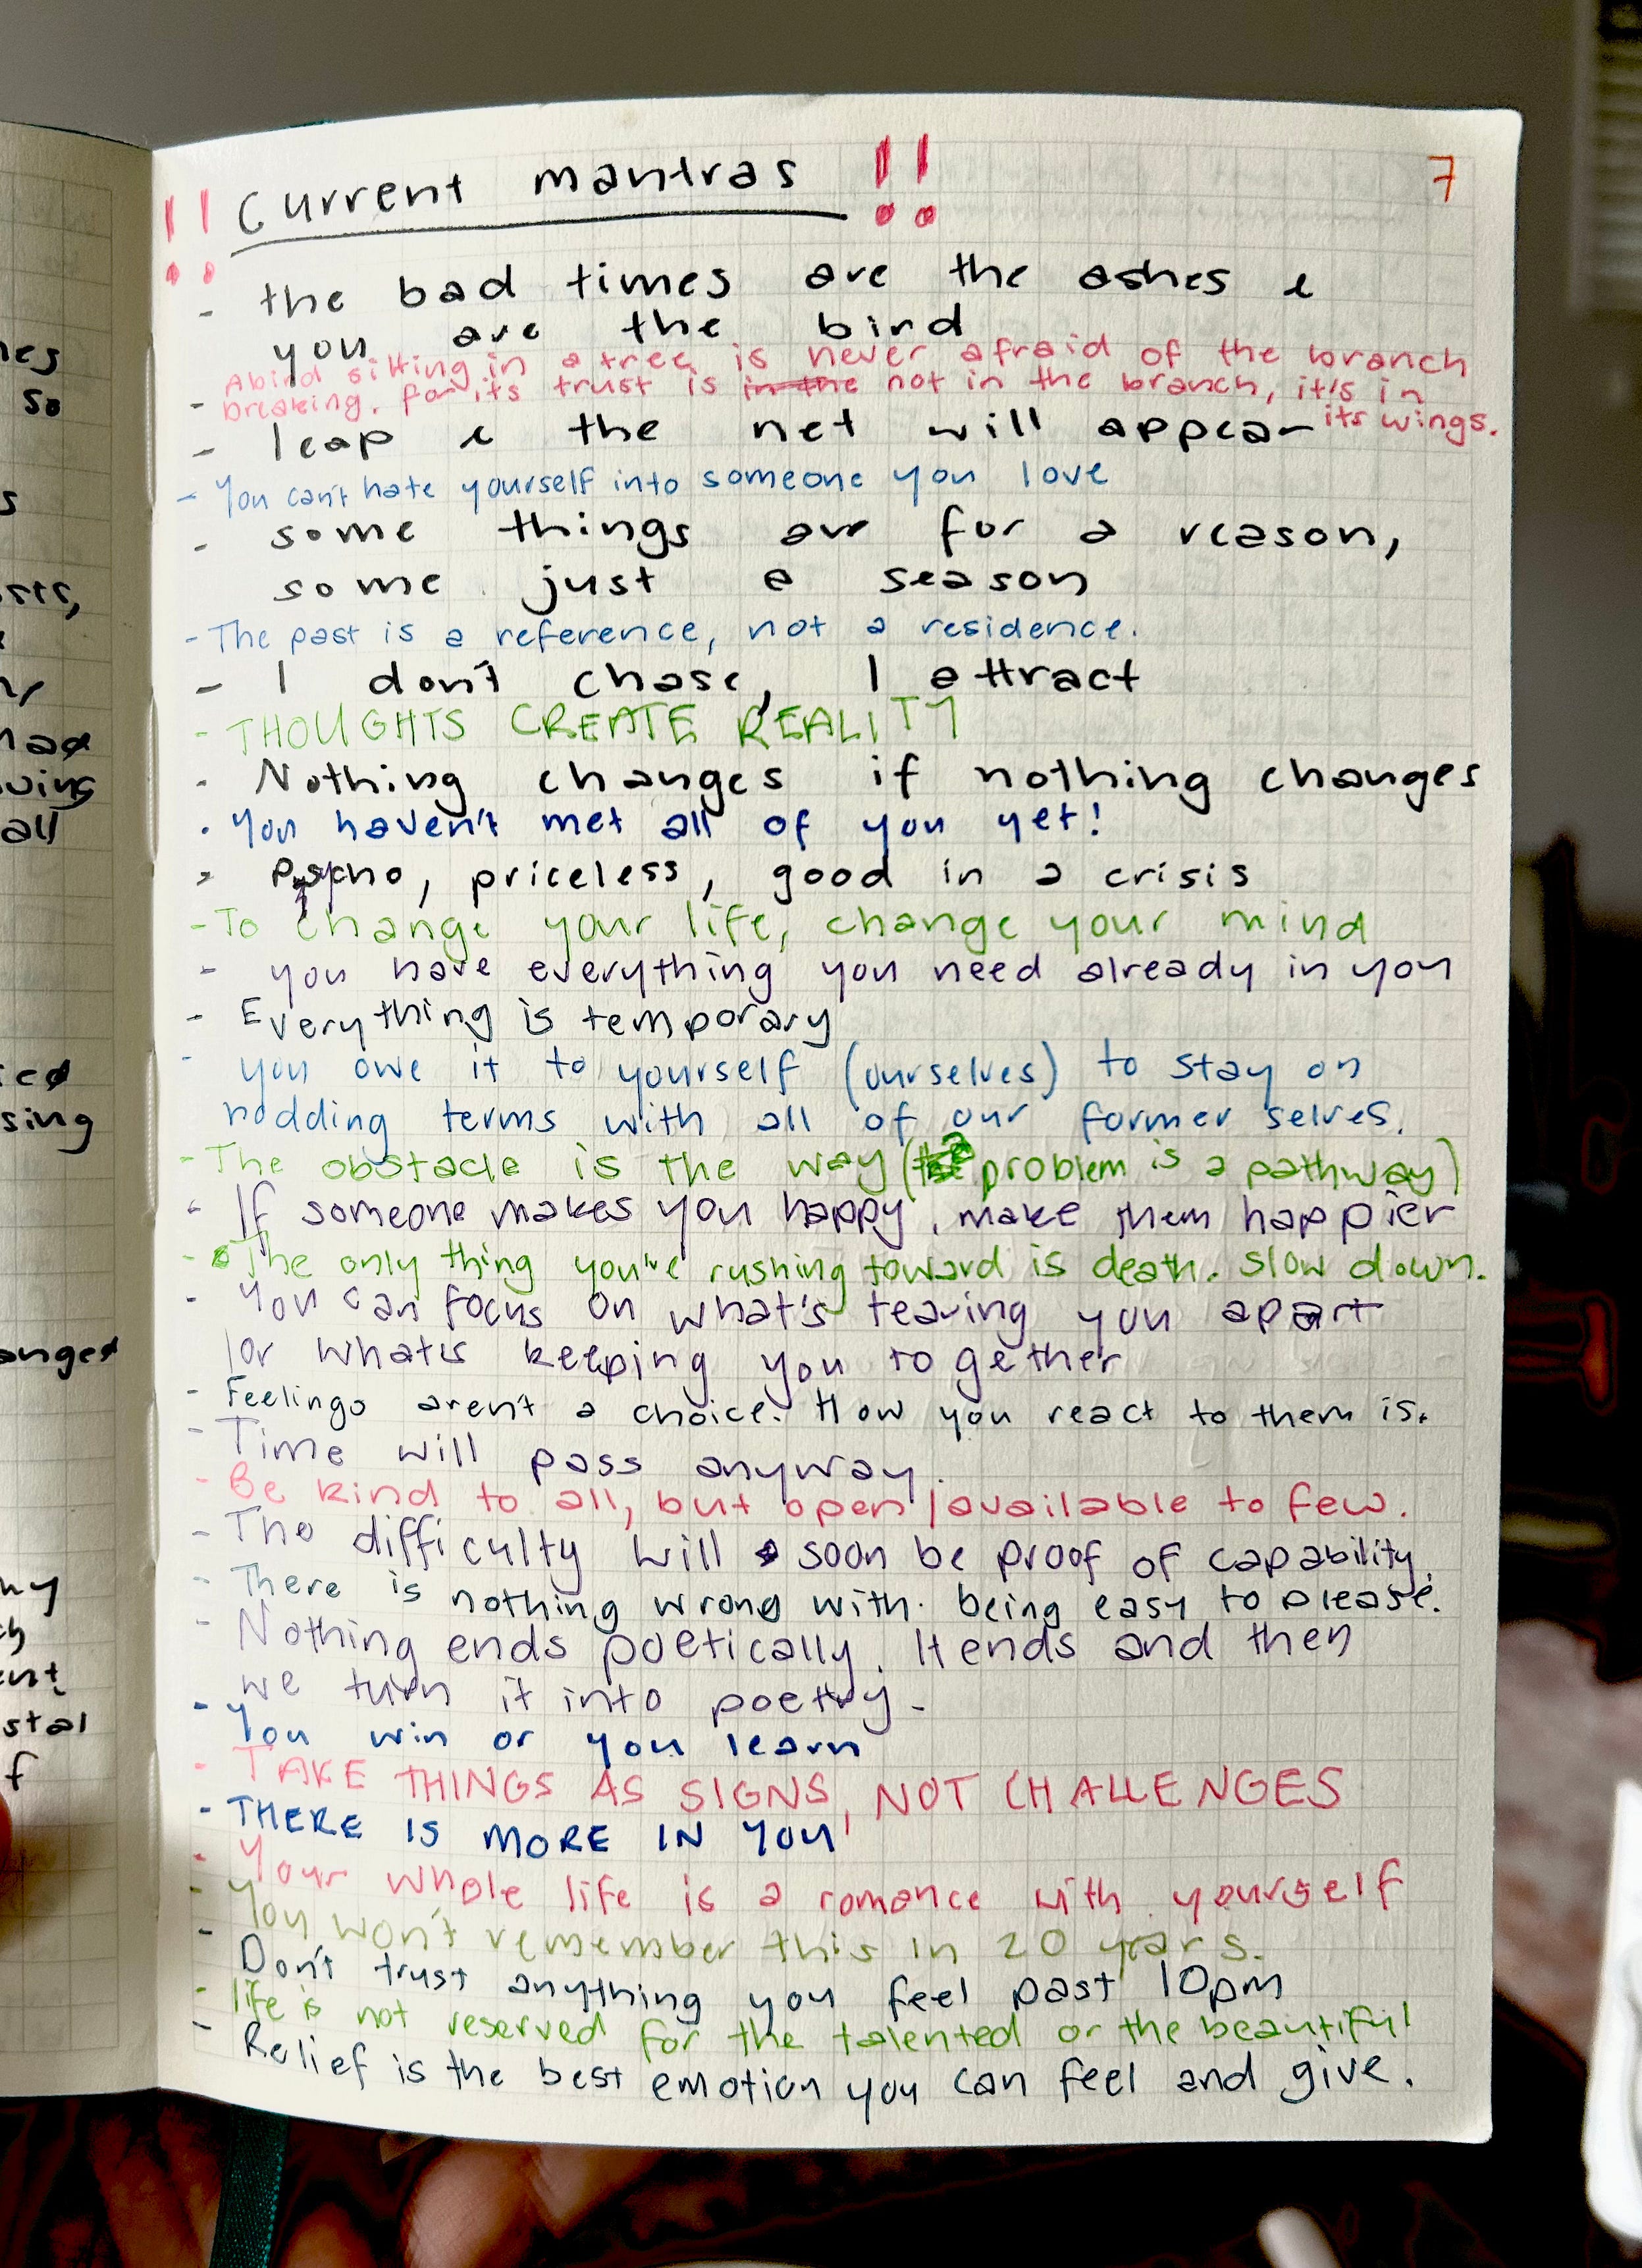 7
!! Current mantras !!
- the bad times are the ashes &
you are the bird
- A bird sitting in a tree is never afraid of the branch
breaking, for its trust is in the not in the branch, it's in
its wings.
- leap & the net will appear
- You can't hate yourself into someone you love
- some things are for a reason,
some just a season
- The past is a reference, not a residence.
- I don't chase, I attract
- THOUGHTS CREATE REALITY
- Nothing changes if nothing changes
- You haven't met all of you yet!
- Psycho, priceless, good in a crisis
- To change your life, change your mind
- you have everything you need already in you
- Everything is temporary
- you owe it to yourself (ourselves) to stay on
nodding terms with all of our former selves.
- The obstacle is the way (a problem is a pathway)
- If someone makes you happy, make them happier
- The only thing you're rushing toward is death. Slow down.
- You can focus on what's tearing you apart
/or what's keeping you together
- Feelings aren't a choice. How you react to them is.
- Time will pass anyway.
- Be kind to all, but open/available to few.
- The difficulty will soon be proof of capability.
- There is nothing wrong with being easy to please.
- Nothing ends poetically. It ends and then
we turn it into poetry.
- You win or you learn
- TAKE THINGS AS SIGNS, NOT CHALLENGES
- THERE IS MORE IN YOU
- Your whole life is a romance with yourself
- You won't remember this in 20 years.
- Don't trust anything you feel past 10pm
- life is not reserved for the talented or the beautiful
- Relief is the best emotion you can feel and give.
so
all
sing